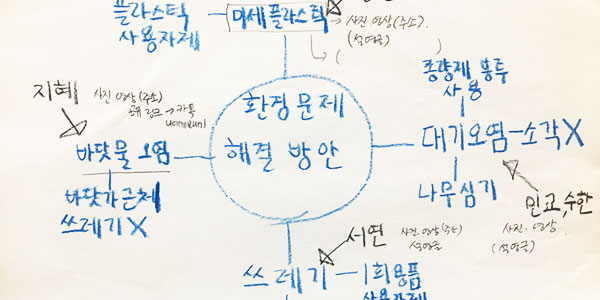 플라스틱
사용자제
미세플라스틱
사진 영상(주소)
지혜
사진 영상(주소)
공유링크 → 카톡
나에게보내기
바닷물 오염
바닷가근처
쓰레기 X
환경문제
해결 방안
종량제 봉투
사용
대기오염-소각X
나무심기
민교,수환
사진·영상
서연
사진·영상(주소)
쓰레기 - 1회용품
사용자제